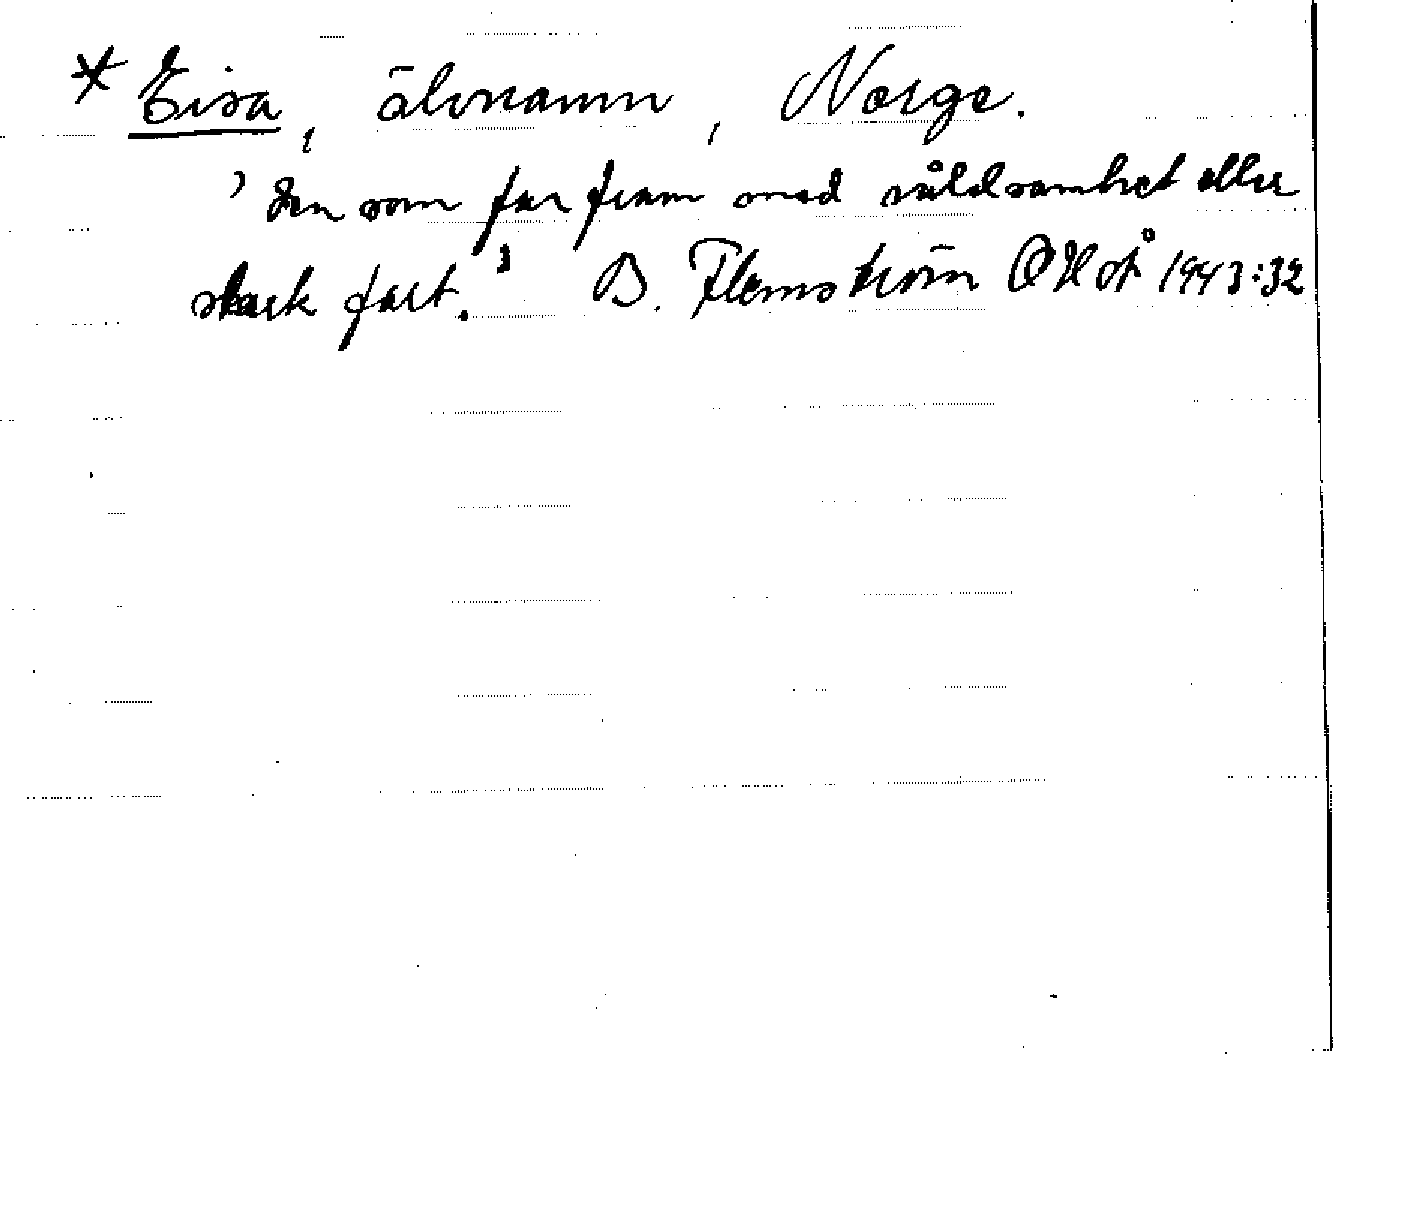 * Eisa, älvnamn, Norge.
’den som far fram med våldsamhet eller
stark fart.’ B. Flemström OHoÅ 1943:32